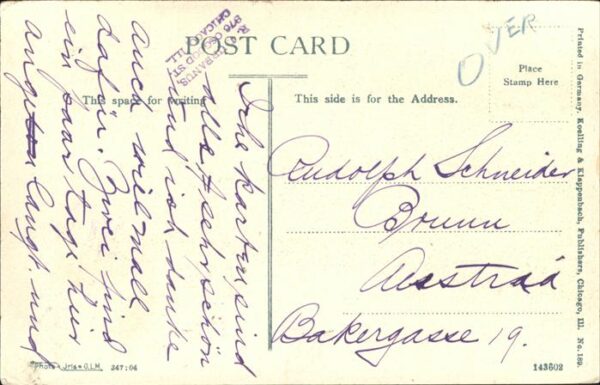 POST CARD
OVER
Place
Stamp Here
This space for writing
This side is for the Address.
Ihre karten sind
alle sehr schön
und ich danke
auch viel mall
dafür. Zwei sind
ein paar tage hier
langt und
Rudolph Schneider
Brunn
Austria
Bakergasse 19.
CHICAGO, ILL
Printed in Germany. Koelling & Klappenbach, Publishers, Chicago, Ill. No. 189.
Photo Iris • O.I.M. 247:04
143602